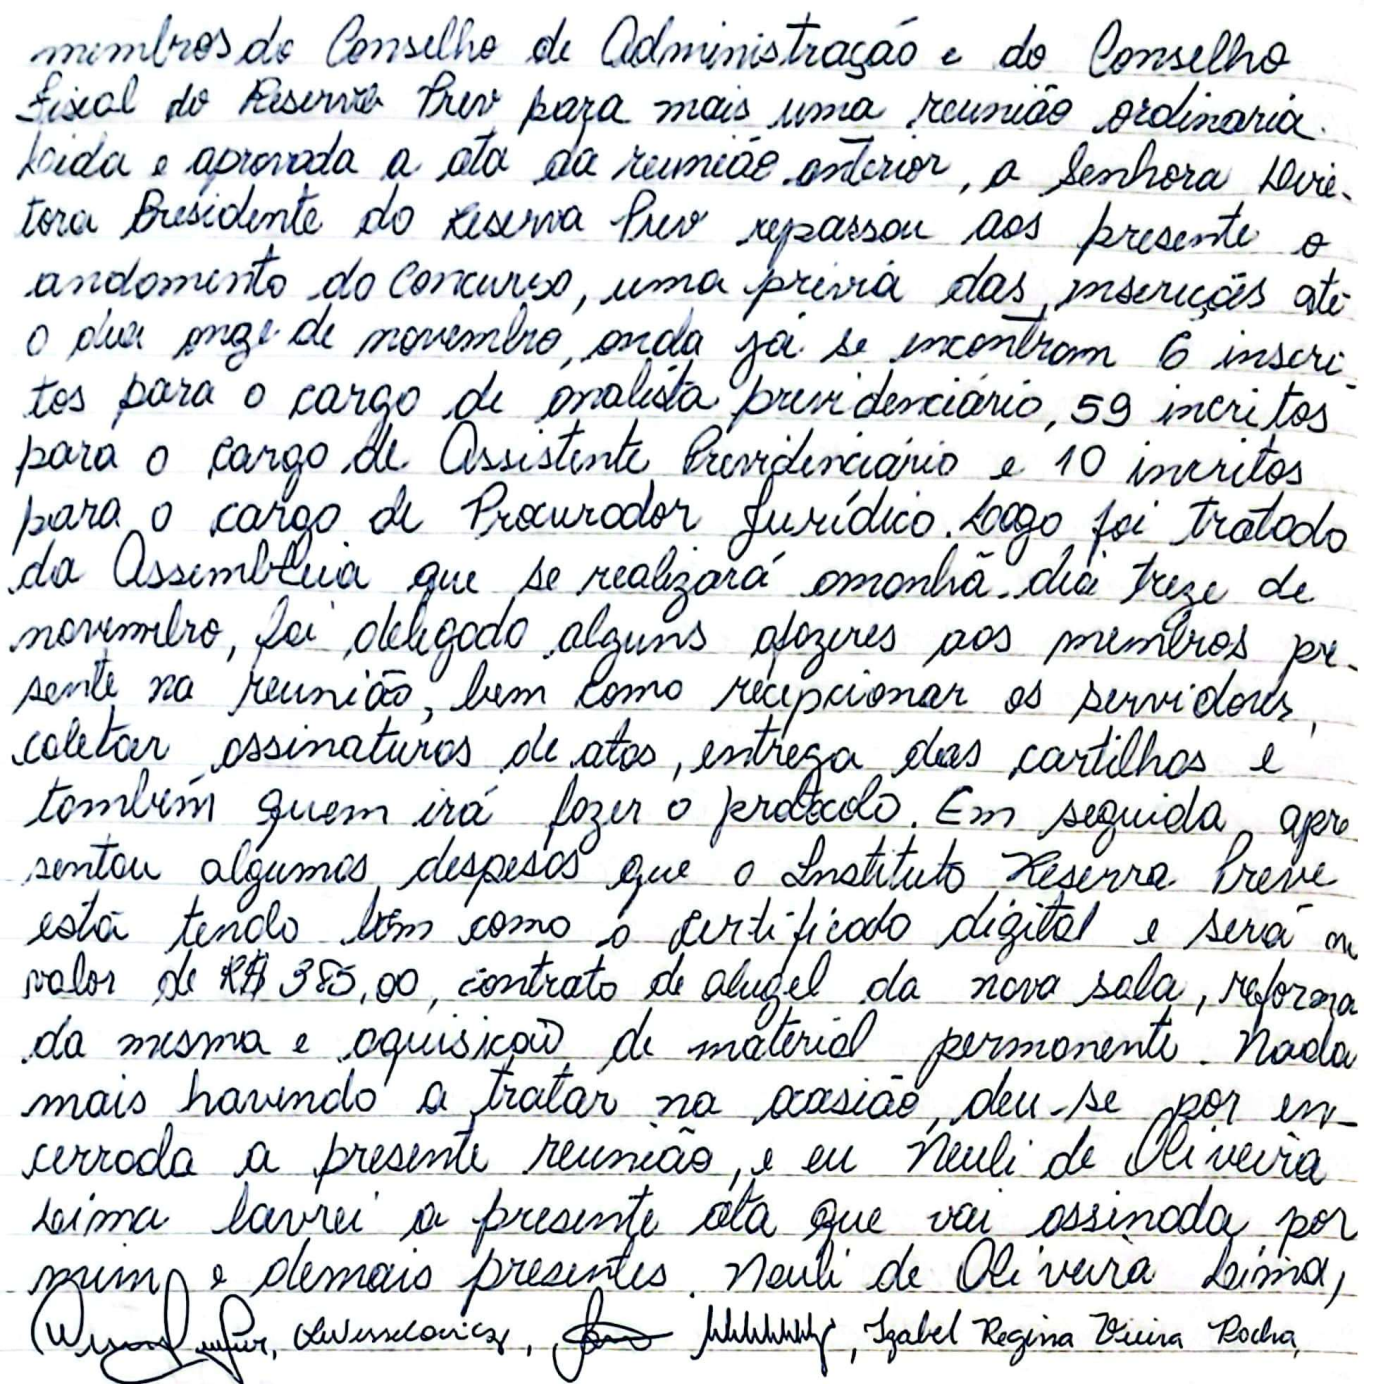 membros do Conselho de Administração e do Conselho
Fiscal do Reserva Prev para mais uma reunião ordinaria.
Loida e aprovada a ata da reunião anterior, a Senhora Dire-
tora Presidente do Reserva Prev repassou aos presente o
andamento do Concurso, uma previa das inscrições até
o dia onze de novembro, onda já se encontram 6 inscri-
tos para o cargo de analista previdenciário, 59 incritos
para o cargo de Assistente Previdenciário e 10 incritos
para o cargo de Procurador Jurídico. Logo foi tratado
da Assembleia que se realizará amanhã dia treze de
novembro, foi delegado alguns afazeres aos membros pre-
sente na reunião, bem como recepcionar os servidores,
coletar assinaturas de atas, entrega das cartilhas e
também quem irá fazer o protocolo. Em seguida apre
sentou algumas despesas que o Instituto Reserva Preve
está tendo bem como o certificado digital e será no
valor de R$ 385,00, contrato de alugel da nova sala, reforma
da mesma e aquisicão de material permanente. Nada
mais havendo a tratar na ocasião, deu-se por en-
cerrada a presente reunião, e eu Neuli de Oliveira
Lima lavrei a presente ata que vai assinada por
mim e demais presentes. Neuli de Oliveira Lima,
Izabel Regina Vieira Rocha,